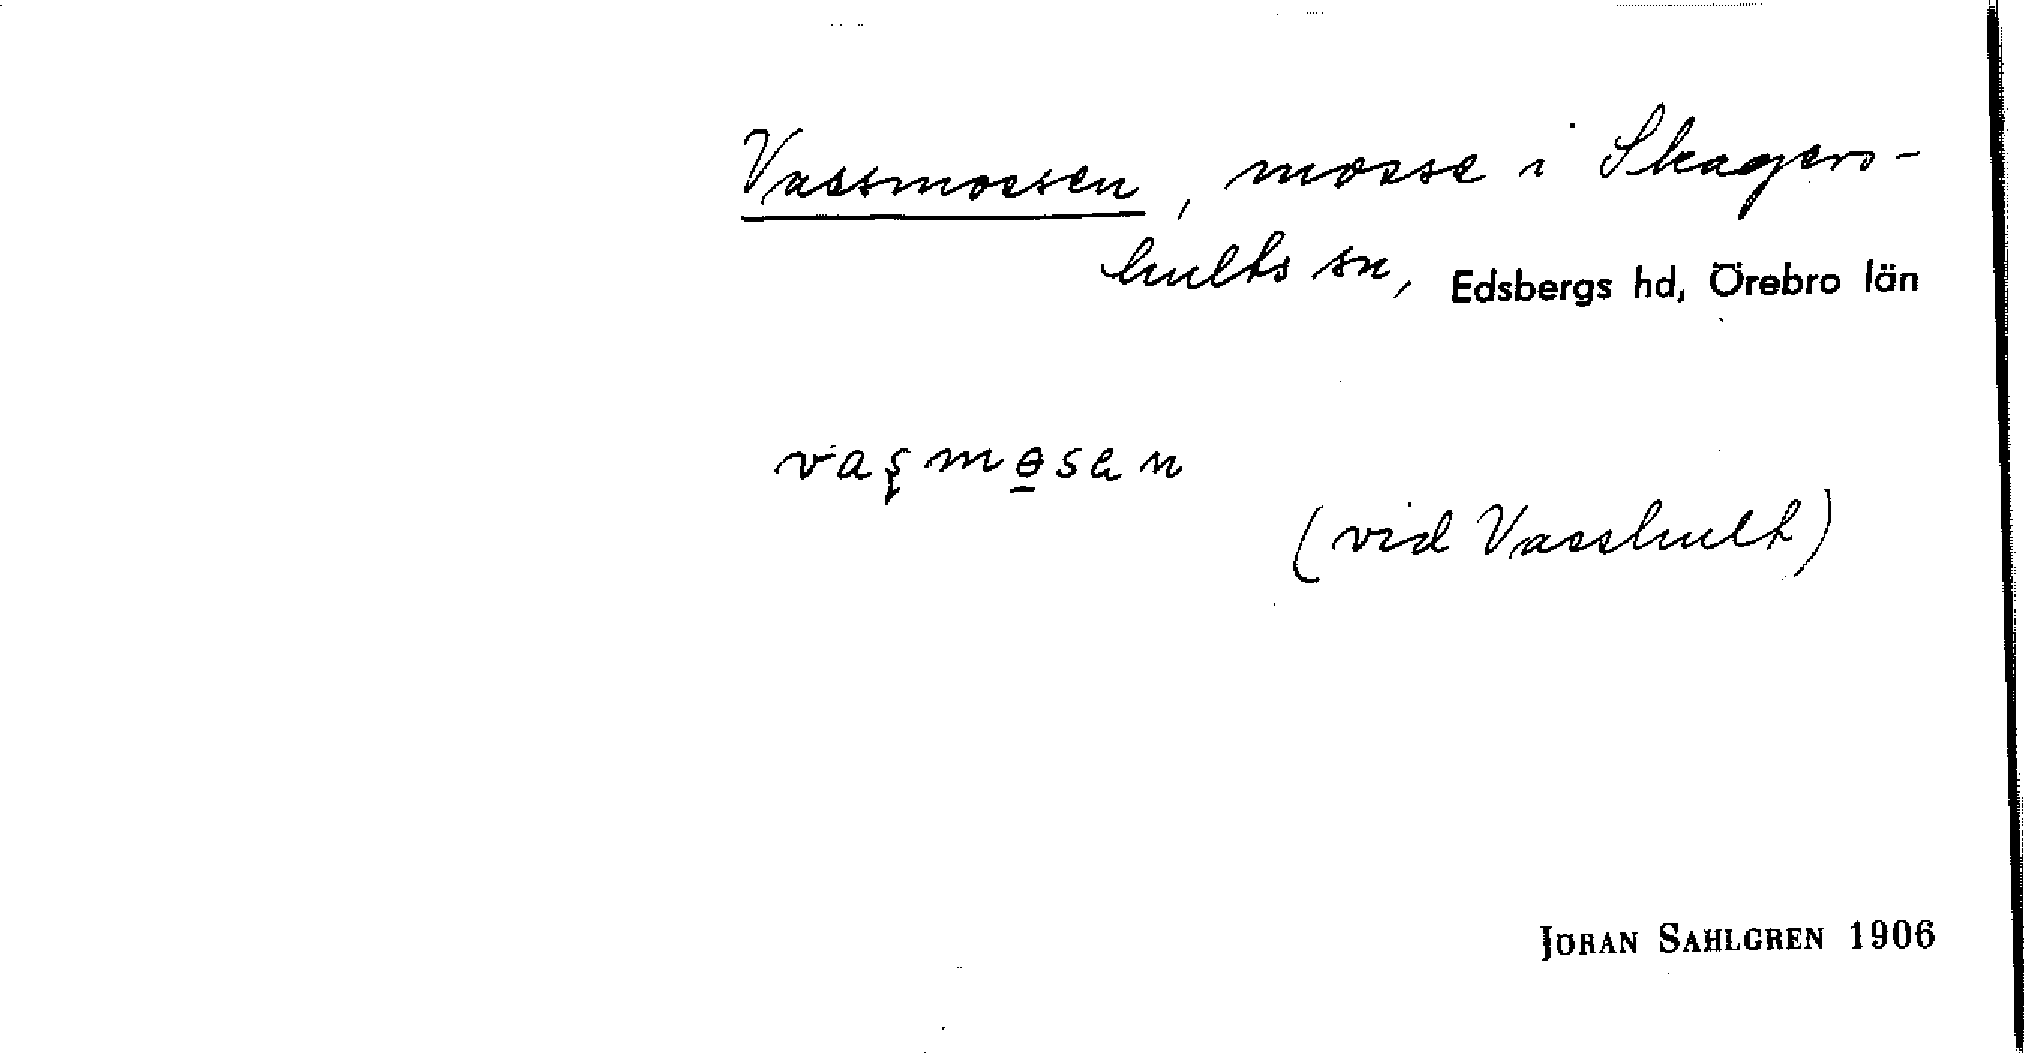 Vassmossen, mosse i Skagers-
hults sn, Edsbergs hd, Örebro län
vaşmɵsen
(vid Vasshult)
JÖRAN SAHLGREN 1906